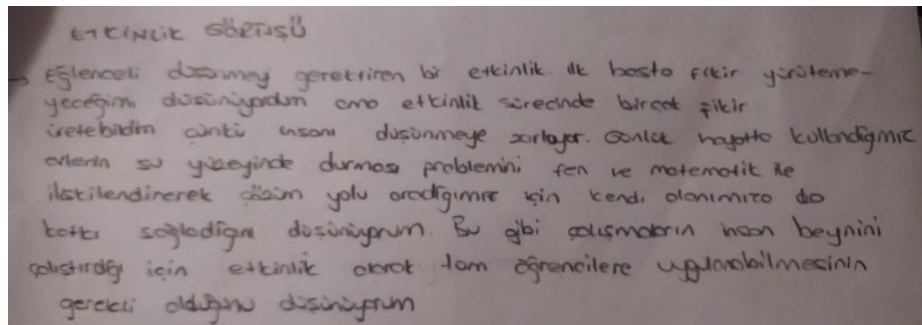 ETKİNLİK GÖRÜŞÜ
→ Eğlenceli düşünmeyi gerektiren bir etkinlik. İlk başta fikir yürüteme-
yeceğimi düşünüyordum ama etkinlik sürecinde birçok fikir
üretebildim çünkü insanı düşünmeye zorluyor. Günlük hayatta kullandığımız
evlerin su yüzeyinde durması problemini fen ve matematik ile
ilişkilendirerek çözüm yolu aradığımız için kendi alanımıza da
katkı sağladığını düşünüyorum. Bu gibi çalışmaların insan beynini
çalıştırdığı için etkinlik olarak tüm öğrencilere uygulanabilmesinin
gerekli olduğunu düşünüyorum